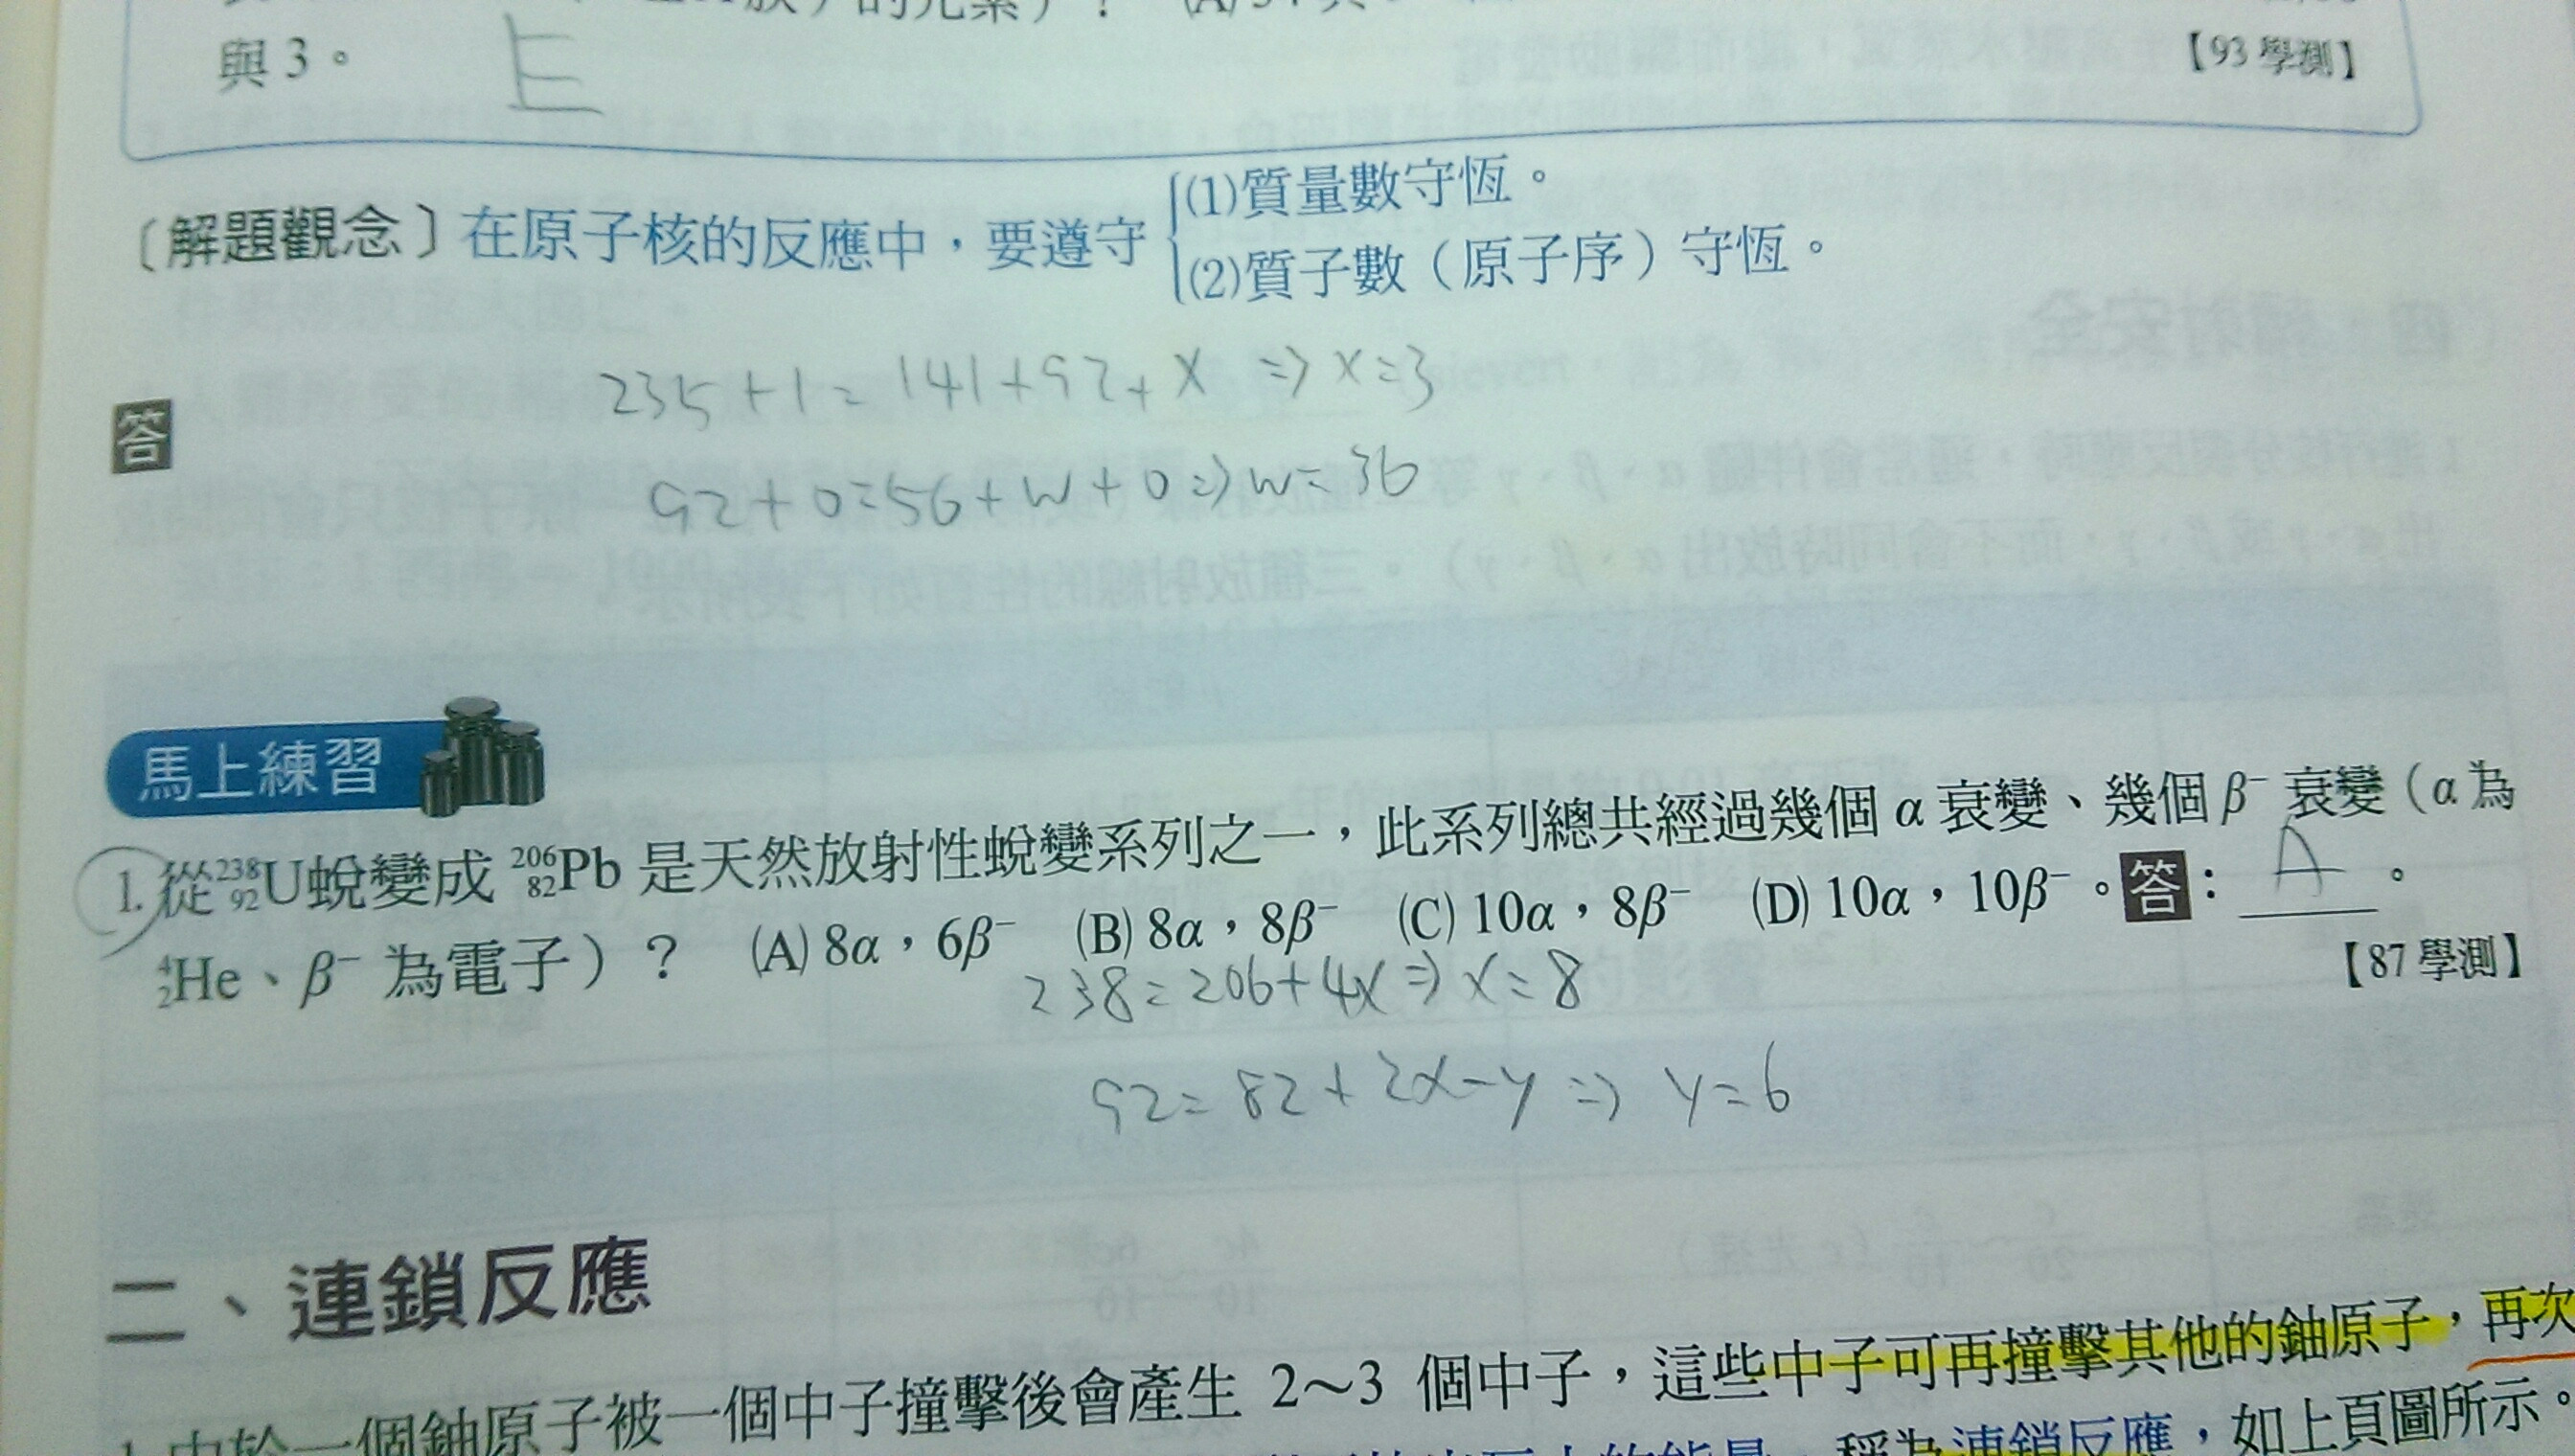 的元素)?
與3。 E 【93 學測】
〔解題觀念〕在原子核的反應中,要遵守
(1)質量數守恆。
(2)質子數(原子序)守恆。
答
235+1=141+92+x ⇒ x=3
92+0=56+w+0 ⇒ w=36
馬上練習
1. 從 ²³⁸₉₂U蛻變成 ²⁰⁶₈₂Pb 是天然放射性蛻變系列之一,此系列總共經過幾個 α 衰變、幾個 β⁻ 衰變(α 為
⁴₂He、β⁻ 為電子)? (A) 8α,6β⁻ (B) 8α,8β⁻ (C) 10α,8β⁻ (D) 10α,10β⁻。答: A 。
【87 學測】
238=206+4x ⇒ x=8
92=82+2x-y ⇒ y=6
二、連鎖反應
1. 由於一個鈾原子被一個中子撞擊後會產生 2~3 個中子,這些中子可再撞擊其他的鈾原子,再次
稱為連鎖反應,如上頁圖所示。